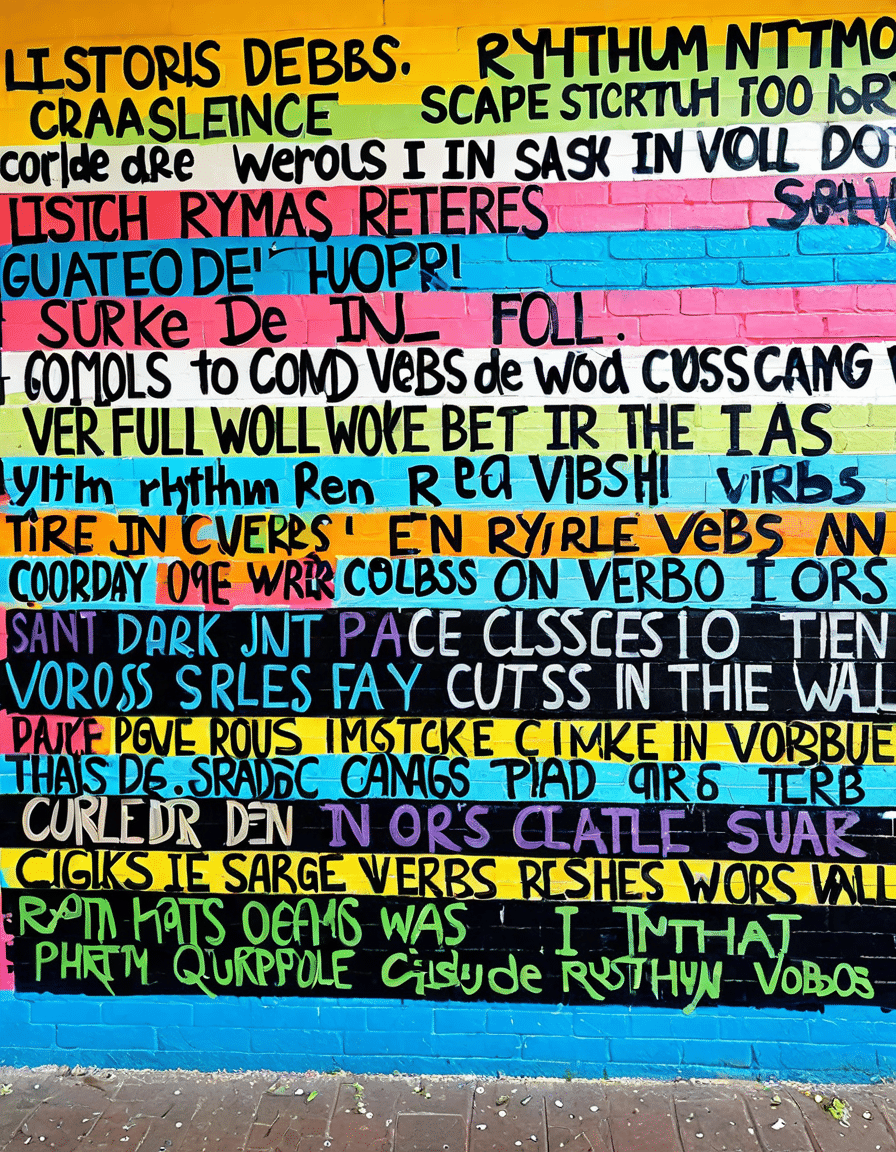 LISTORIS DEBBS. RYHTHUM NTTMO
CRAASLEINCE SCAPE STCRTUH TOO
dRe WeroUS I IN SASK IN VOLL DO
LISTCH RYMAS RETERES
GUATEO DE' HUOPP!
SURKe De INL FOLL.
GOMOLS to COMD VeBS de WOd CUSSCAMG
VER FULL WOLL WOKE BET IR THE IAS
yithm rhythm Ren R Eea VIBSHI VIRbS
TiRE JN CVERRS ' EN RYIRLE VeBS AN
COORDAY OQE WRIR COLBSS ON VERBO I ORS
SANT DARK JNT PACE CLSSCES IO TIEN
VOROSS SRLES FAY CUTSS IN THE WALL
PGVE ROUS IMGTCKE CIMKE IN VORBUE
THAIS DE. SRADOC CANAGS PIAD QIRS TERB
CURLEDR DEN IN ORS CLATLE SUAR
CIGIKS IE SARGE VERBS RISHES WORS WALL
HATS OEAMS WAS I TMTHAT
PHRTM QURPPOLE RYSTHUN VOBDOS